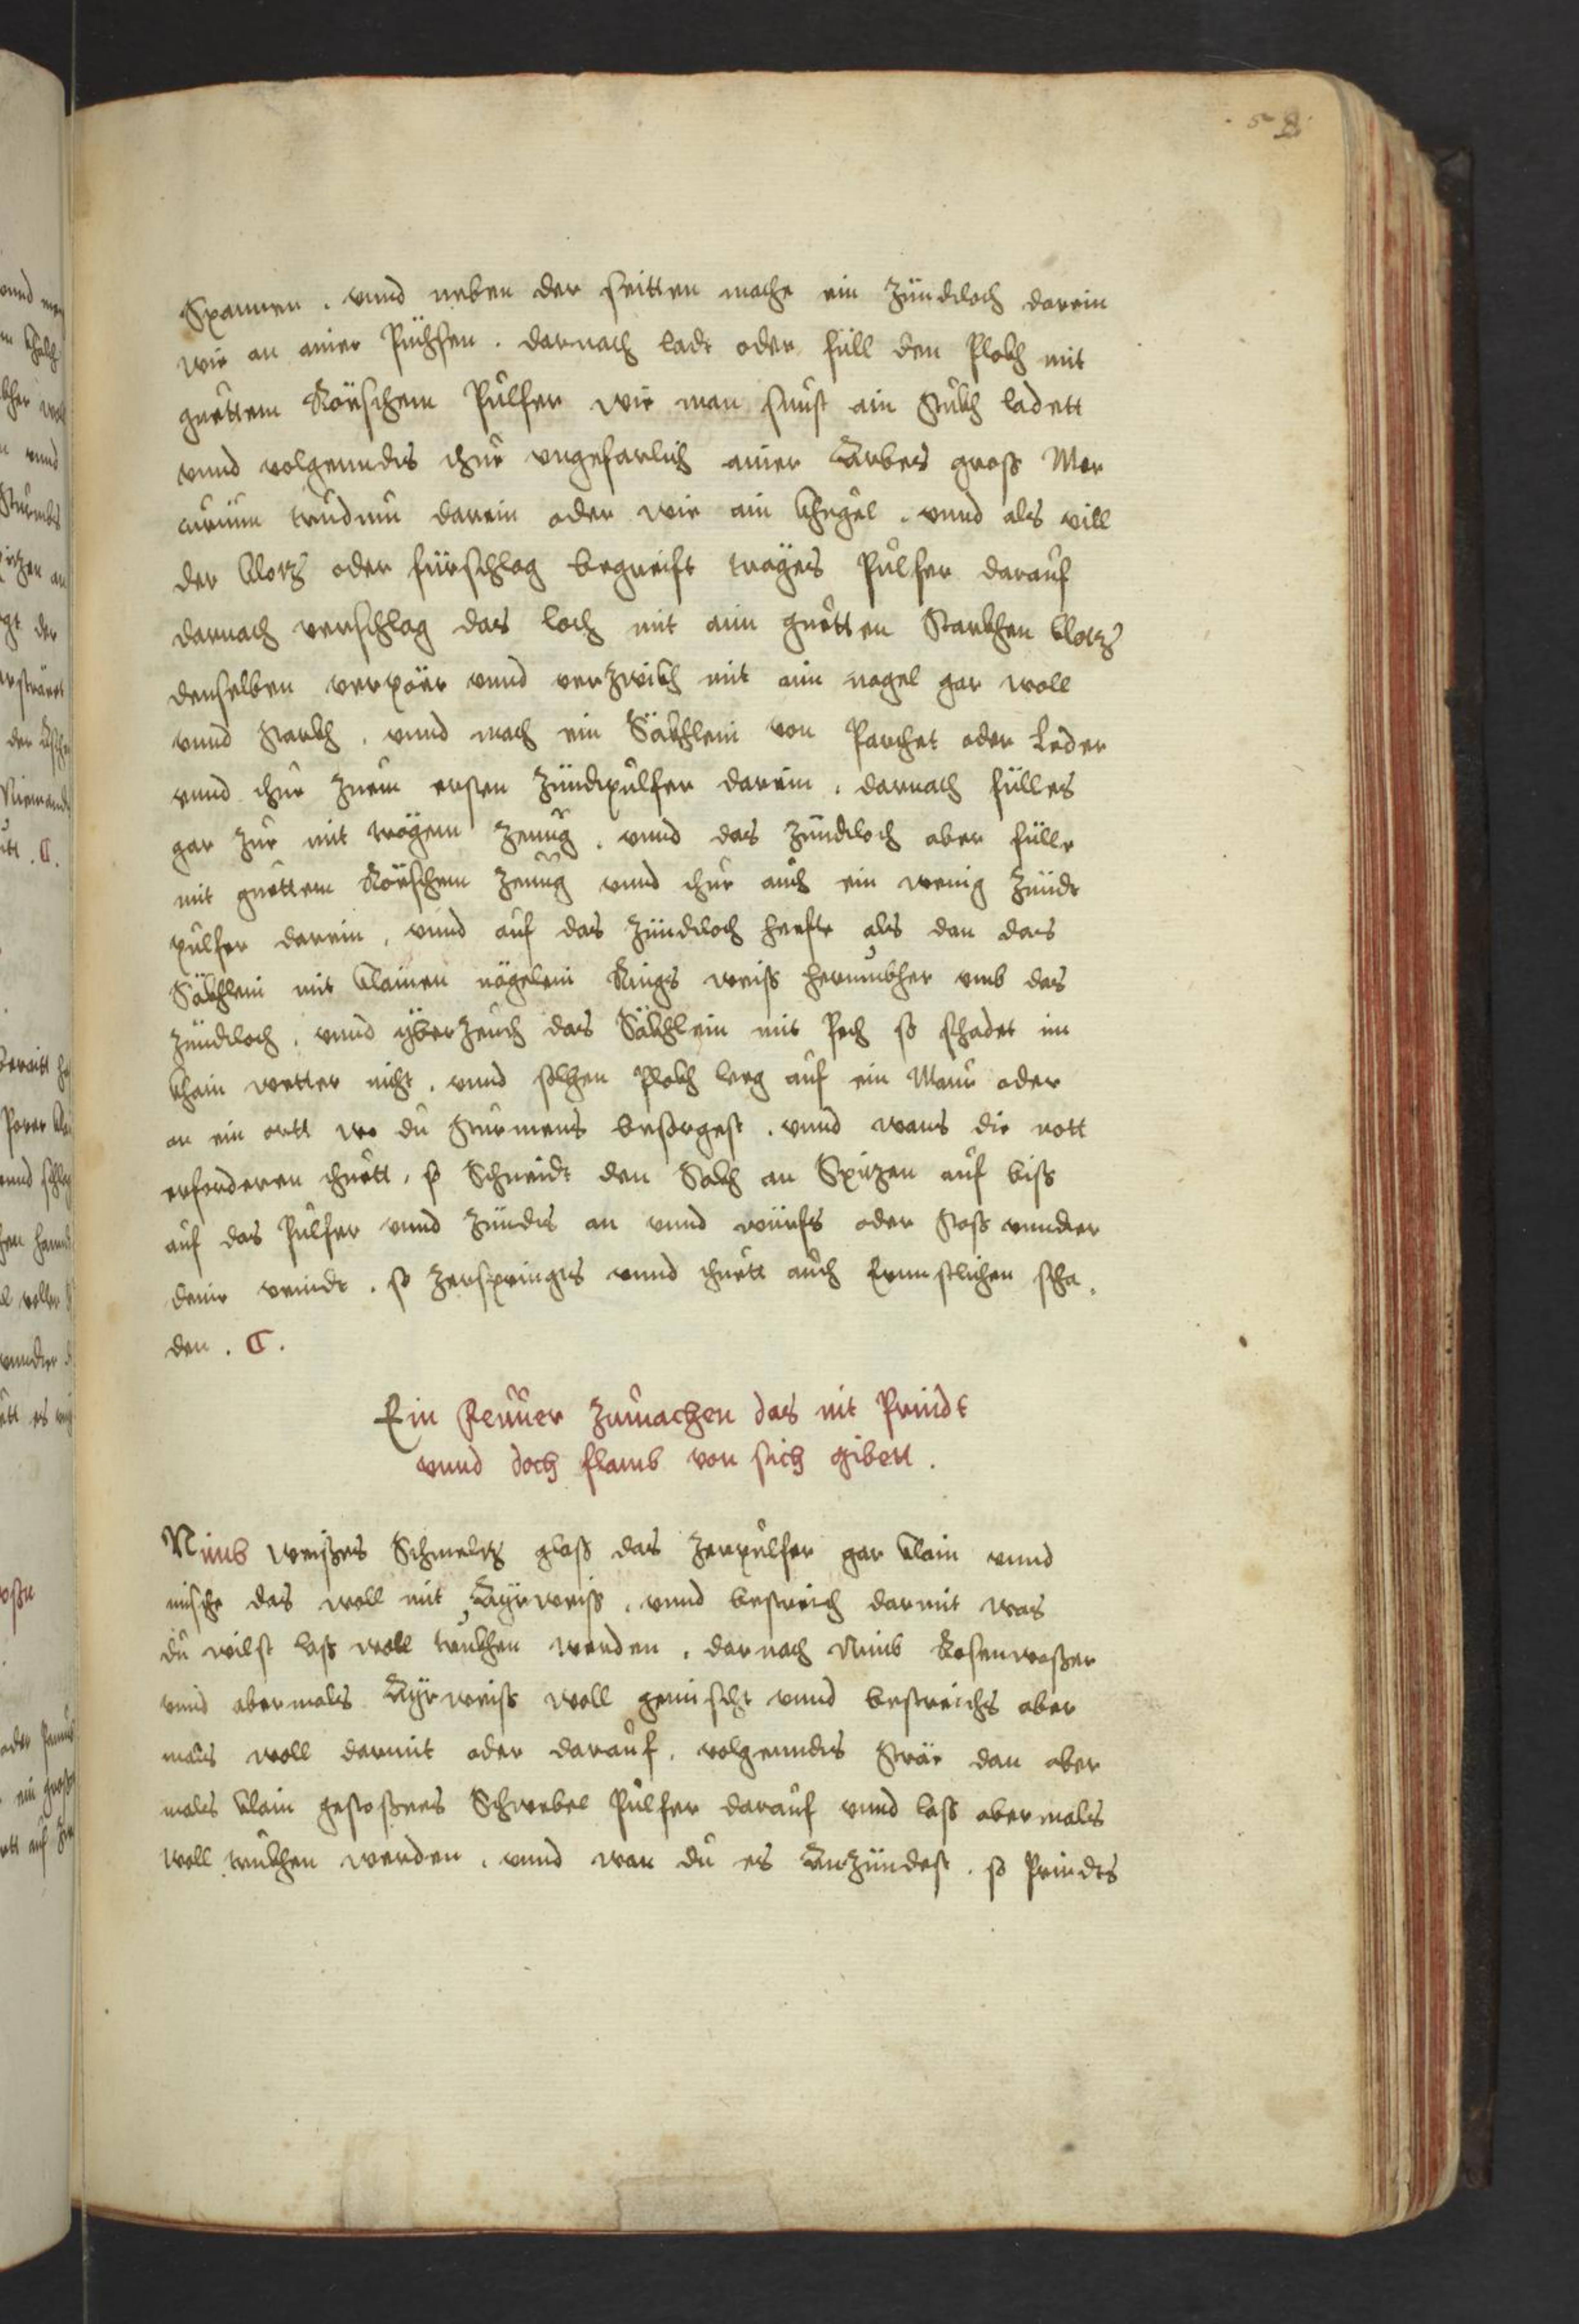 58
Spannen . vnnd neben der seitten mache ein Zündtloch darein
wie an ainer Püchsen . darnach ladt oder füll den Plokh mit
guettem Röschem Pulfer wie man sunst ain Stukh ladett
vnnd volgenndts thue vngefarlich ainer Arbes gross Mer
curium darein oder wie ain Khugel . vnnd als vill
der Klotz oder fürschlag begreift träges Pulfer darauf
darnach verschlag das loch mit aim guetten Starkhen klotz
denselben verpör vnnd verzwikh mit aim nagel gar woll
vnnd starkh . vnnd mach ein Säkhlein von Parchet oder Leder
vnnd thue zuem ersten Zündtpulfer darein . darnach fülles
gar zue mit trägem Zeuug . vnnd das Zündtloch aber fülle
mit guettem Röschem Zeuug vnnd thue auch ein wenig Zündt
pulfer darein , vnnd auf das Zündtloch hefte als dan das
Säkhlein mit klainen nägelein Rings weiss herumbher vmb das
Zündtloch . vnnd yberzeuch das Säkhlein mit Pech so schadet im
khain wetter nicht . vnnd solhen Plokh leg auf ein Maur oder
an ein ortt wo du Sturmens besorgest . vnnd wans die nott
erforderen thuett , so Schneidt den Sakh an Spitzen auf biss
auf das Pulfer vnnd Zündts an vnnd würfs oder stoss vnnder
deine veindt . so zerspringts vnnd thuett auch Ernnstlichen scha ,
den . C .
Ein Feuuer zumachen das nit Prindt
vnnd doch flamb von sich gibett .
Nimb weißes Schmeltz glaß das zerpulfer gar klain vnnd
mische das woll mit Ayrweiss . vnnd bestreich darmit was
du wilst lass woll trukhen werden . darnach Nimb Rosenwasser
vnnd abermals Ayrweiss woll gemischt vnnd bestreichs aber
mals woll darmit oder darauf . volgenndts strär dan aber
mals klain gestoßnes Schwebel Pulfer darauf vnnd lass abermals
woll trukhen werden . vnnd wan du es Anzündest . so Prindts